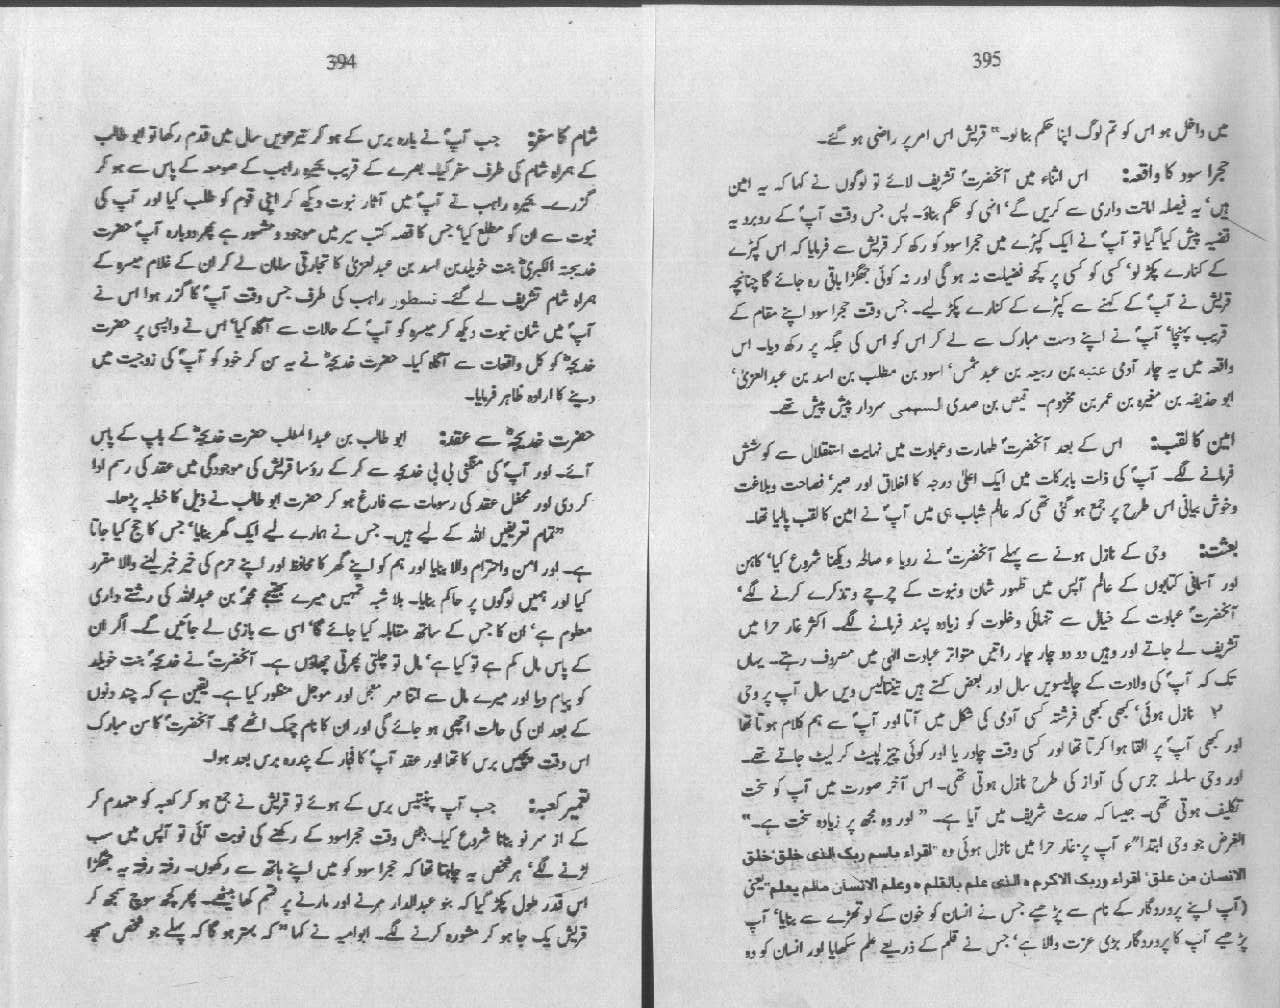 394
شام کا سفر: جب آپؐ نے بارہ برس کے ہو کر تیرھویں سال میں قدم رکھا تو ابو طالب
کے ہمراہ شام کی طرف سفر کیا۔ بصرے کے قریب بحیرہ راہب کے صومعہ کے پاس سے ہو کر
گزرے۔ بحیرہ راہب نے آپؐ میں آثار نبوت دیکھ کر اپنی قوم کو طلب کیا اور آپ کی
نبوت سے ان کو مطلع کیا‘ جس کا قصہ کتب سیر میں موجود و مشہور ہے پھر دوبارہ آپؐ حضرت
خدیجتہ الکبریؓ بنت خویلد بن اسد بن عبدالعزیٰ کا تجارتی سامان لے کر ان کے غلام میسرہ کے
ہمراہ شام تشریف لے گئے۔ نسطور راہب کی طرف جس وقت آپؐ کا گزر ہوا اس نے
آپؐ میں شان نبوت دیکھ کر میسرہ کو آپؐ کے حالات سے آگاہ کیا‘ اس نے واپسی پر حضرت
خدیجہؓ کو کل واقعات سے آگاہ کیا۔ حضرت خدیجہؓ نے یہ سن کر خود کو آپؐ کی زوجیت میں
دینے کا ارادہ ظاہر فرمایا۔
حضرت خدیجہؓ سے عقد: ابو طالب بن عبدالمطلب حضرت خدیجہؓ کے باپ کے پاس
آئے۔ اور آپؐ کی منگنی بی بی خدیجہ سے کر کے رؤسا قریش کی موجودگی میں عقد کی رسم ادا
کر دی اور محفل عقد کی رسومات سے فارغ ہو کر حضرت ابو طالب نے ذیل کا خطبہ پڑھا۔
”تمام تعریفیں اللہ کے لیے ہیں۔ جس نے ہمارے لیے ایک گھر بنایا‘ جس کا حج کیا جاتا
ہے۔ اور امن و احترام والا بنایا اور ہم کو اپنے گھر کا محافظ اور اپنے حرم کی خیر خبر لینے والا مقرر
کیا اور ہمیں لوگوں پر حاکم بنایا۔ بلا شبہ تمہیں میرے بھتیجے محمدؐ بن عبداللہ کی رشتے داری
معلوم ہے‘ ان کا جس کے ساتھ مقابلہ کیا جائے گا‘ اسی سے بازی لے جائیں گے۔ اگر ان
کے پاس مال کم ہے تو کیا ہے‘ مال تو چلتی پھرتی چھاؤں ہے۔ آنحضرتؐ نے خدیجہؓ بنت خویلد
کو پیام دیا اور میرے مال سے اتنا مہر معجل اور موجل منظور کیا ہے۔ یقین ہے کہ چند دنوں
کے بعد ان کی حالت اچھی ہو جائے گی اور ان کا نام چمک اٹھے گا۔ آنحضرتؐ کا سن مبارک
اس وقت پچیس برس کا تھا اور عقد آپؐ کا فجار کے پندرہ برس بعد ہوا۔
تعمیر کعبہ: جب آپ پینتیس برس کے ہوئے تو قریش نے جمع ہو کر کعبہ کو منہدم کر
کے از سر نو بنانا شروع کیا۔ جس وقت حجراسود کے رکھنے کی نوبت آئی تو آپس میں سب
لڑنے لگے‘ ہر شخص یہ چاہتا تھا کہ حجرا سود کو میں اپنے ہاتھ سے رکھوں۔ رفتہ رفتہ یہ جھگڑا
اس قدر طول پکڑ گیا کہ بنو عبدالدار مرنے اور مارنے پر قسم کھا بیٹھے۔ پھر کچھ سوچ سمجھ کر
قریش یک جا ہو کر مشورہ کرنے لگے۔ ابوامیہ نے کہا ”کہ بہتر ہو گا کہ پہلے جو شخص مسجد
395
میں داخل ہو اس کو تم لوگ اپنا حکم بنا لو۔“ قریش اس امر پر راضی ہو گئے۔
حجرا سود کا واقعہ: اس اثناء میں آنحضرتؐ تشریف لائے تو لوگوں نے کہا کہ یہ امین
ہیں‘ یہ فیصلہ امانت داری سے کریں گے‘ انہی کو حکم بناؤ۔ پس جس وقت آپؐ کے روبرو یہ
قضیہ پیش کیا گیا تو آپؐ نے ایک کپڑے میں حجرا سود کو رکھ کر قریش سے فرمایا کہ اس کپڑے
کے کنارے پکڑ لو‘ کسی کو کسی پر کچھ فضیلت نہ ہو گی اور نہ کوئی جھگڑا باقی رہ جائے گا چنانچہ
قریش نے آپؐ کے کہنے سے کپڑے کے کنارے پکڑ لیے۔ جس وقت حجرا سود اپنے مقام کے
قریب پہنچا‘ آپؐ نے اپنے دست مبارک سے لے کر اس کو اس کی جگہ پر رکھ دیا۔ اس
واقعہ میں یہ چار آدمی عتبہ بن ربیعہ بن عبد شمس‘ اسود بن مطلب بن اسد بن عبدالعزیٰ‘
ابو حذیفہ بن مغیرہ بن عمر بن مخزوم۔ قیص بن صدی السہمی سردار پیش پیش تھے۔
امین کا لقب: اس کے بعد آنحضرتؐ طہارت و عبادت میں نہایت استقلال سے کوشش
فرمانے لگے۔ آپؐ کی ذات بابرکات میں ایک اعلیٰ درجہ کا اخلاق اور صبر‘ فصاحت و بلاغت
و خوش بیانی اس طرح پر جمع ہو گئی تھی کہ عالم شباب ہی میں آپؐ نے امین کا لقب پالیا تھا۔
بعثت: وحی کے نازل ہونے سے پہلے آنحضرتؐ نے رویاء صالحہ دیکھنا شروع کیا‘ کاہن
اور آسمانی کتابوں کے عالم آپس میں ظہور شان و نبوت کے چرچے و تذکرے کرنے لگے‘
آنحضرتؐ عبادت کے خیال سے تنہائی و خلوت کو زیادہ پسند فرمانے لگے۔ اکثر غار حرا میں
تشریف لے جاتے اور وہیں دو دو چار چار راتیں متواتر عبادت الٰہی میں مصروف رہتے۔ یہاں
تک کہ آپؐ کی ولادت کے چالیسویں سال اور بعض کہتے ہیں تینتالیس ویں سال آپ پر وحی
۲ نازل ہوئی‘ کبھی کبھی فرشتہ کسی آدمی کی شکل میں آتا اور آپؐ سے ہم کلام ہوتا تھا
اور کبھی آپؐ پر القا ہوا کرتا تھا اور کسی وقت چادر یا اور کوئی چیز لپیٹ کر لیٹ جاتے تھے۔
اور وحی سلسلہ جرس کی آواز کی طرح نازل ہوتی تھی۔ اس آخر صورت میں آپ کو سخت
تکلیف ہوتی تھی۔ جیسا کہ حدیث شریف میں آیا ہے۔ ”اور وہ مجھ پر زیادہ سخت ہے۔“
الغرض جو وحی ابتدا”ء آپ پر غار حرا میں نازل ہوئی وہ ”اقراء باسم ربک الذی خلق‘ خلق
الانسان من علق‘ اقراء وربک الاکرم ہ الذی علم بالقلم ہ وعلم الانسان مالم یعلم“ یعنی
(آپ اپنے پروردگار کے نام سے پڑھیے جس نے انسان کو خون کے لوتھڑے سے بنایا‘ آپ
پڑھیے آپ کا پروردگار بڑی عزت والا ہے‘ جس نے قلم کے ذریعے علم سکھایا اور انسان کو وہ